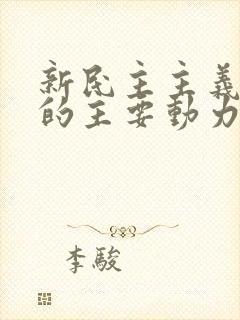 新民主主義
的主要動力
李駿